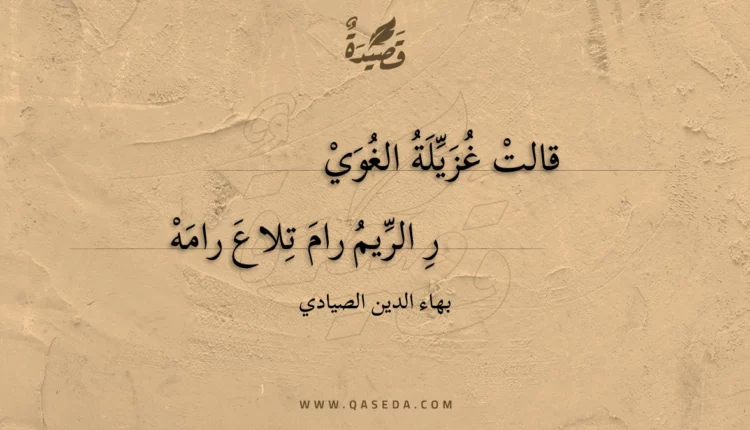 قَصِيدَةٌ
قالتْ غُزَيِّلَةُ الغُوَيْ
رِ الرِّيمُ رامَ تِلاعَ رامَهْ
بهاء الدين الصيادي
WWW.QASEDA.COM